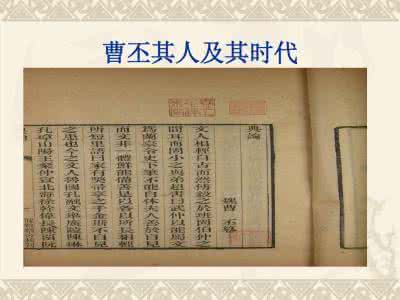 曹丕其人及其时代
典論
魏曹 丕譔
文人相輕自古而然傅毅之於班固伯仲之
間耳而固小之與弟超書曰武仲以能屬文
爲蘭臺令史下筆不能自休夫人善於自見
而文非一體鮮能備善是以各以所長相輕
所短里語曰家有弊帚享之千金斯不自見
之患也今之文人魯國孔融文舉廣陵陳琳
孔璋山陽王粲仲宣北海徐幹偉長陳留阮